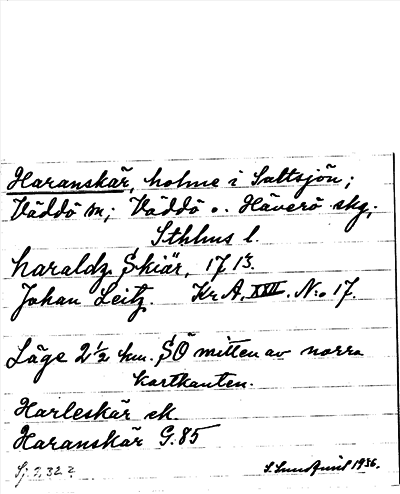 Haranskär, holme i Saltsjön;
Väddö sn; Väddö o. Häverö skg;
Sthlms l.
haraldz Skiär, 1713.
Johan Leitz. Kr. A. XXVI. No 17.
Läge 2½ km. SÖ mitten av norra
kartkanten.
Harleskär ek.
Haranskär G. 85
Sj 2, 32 2
1936.